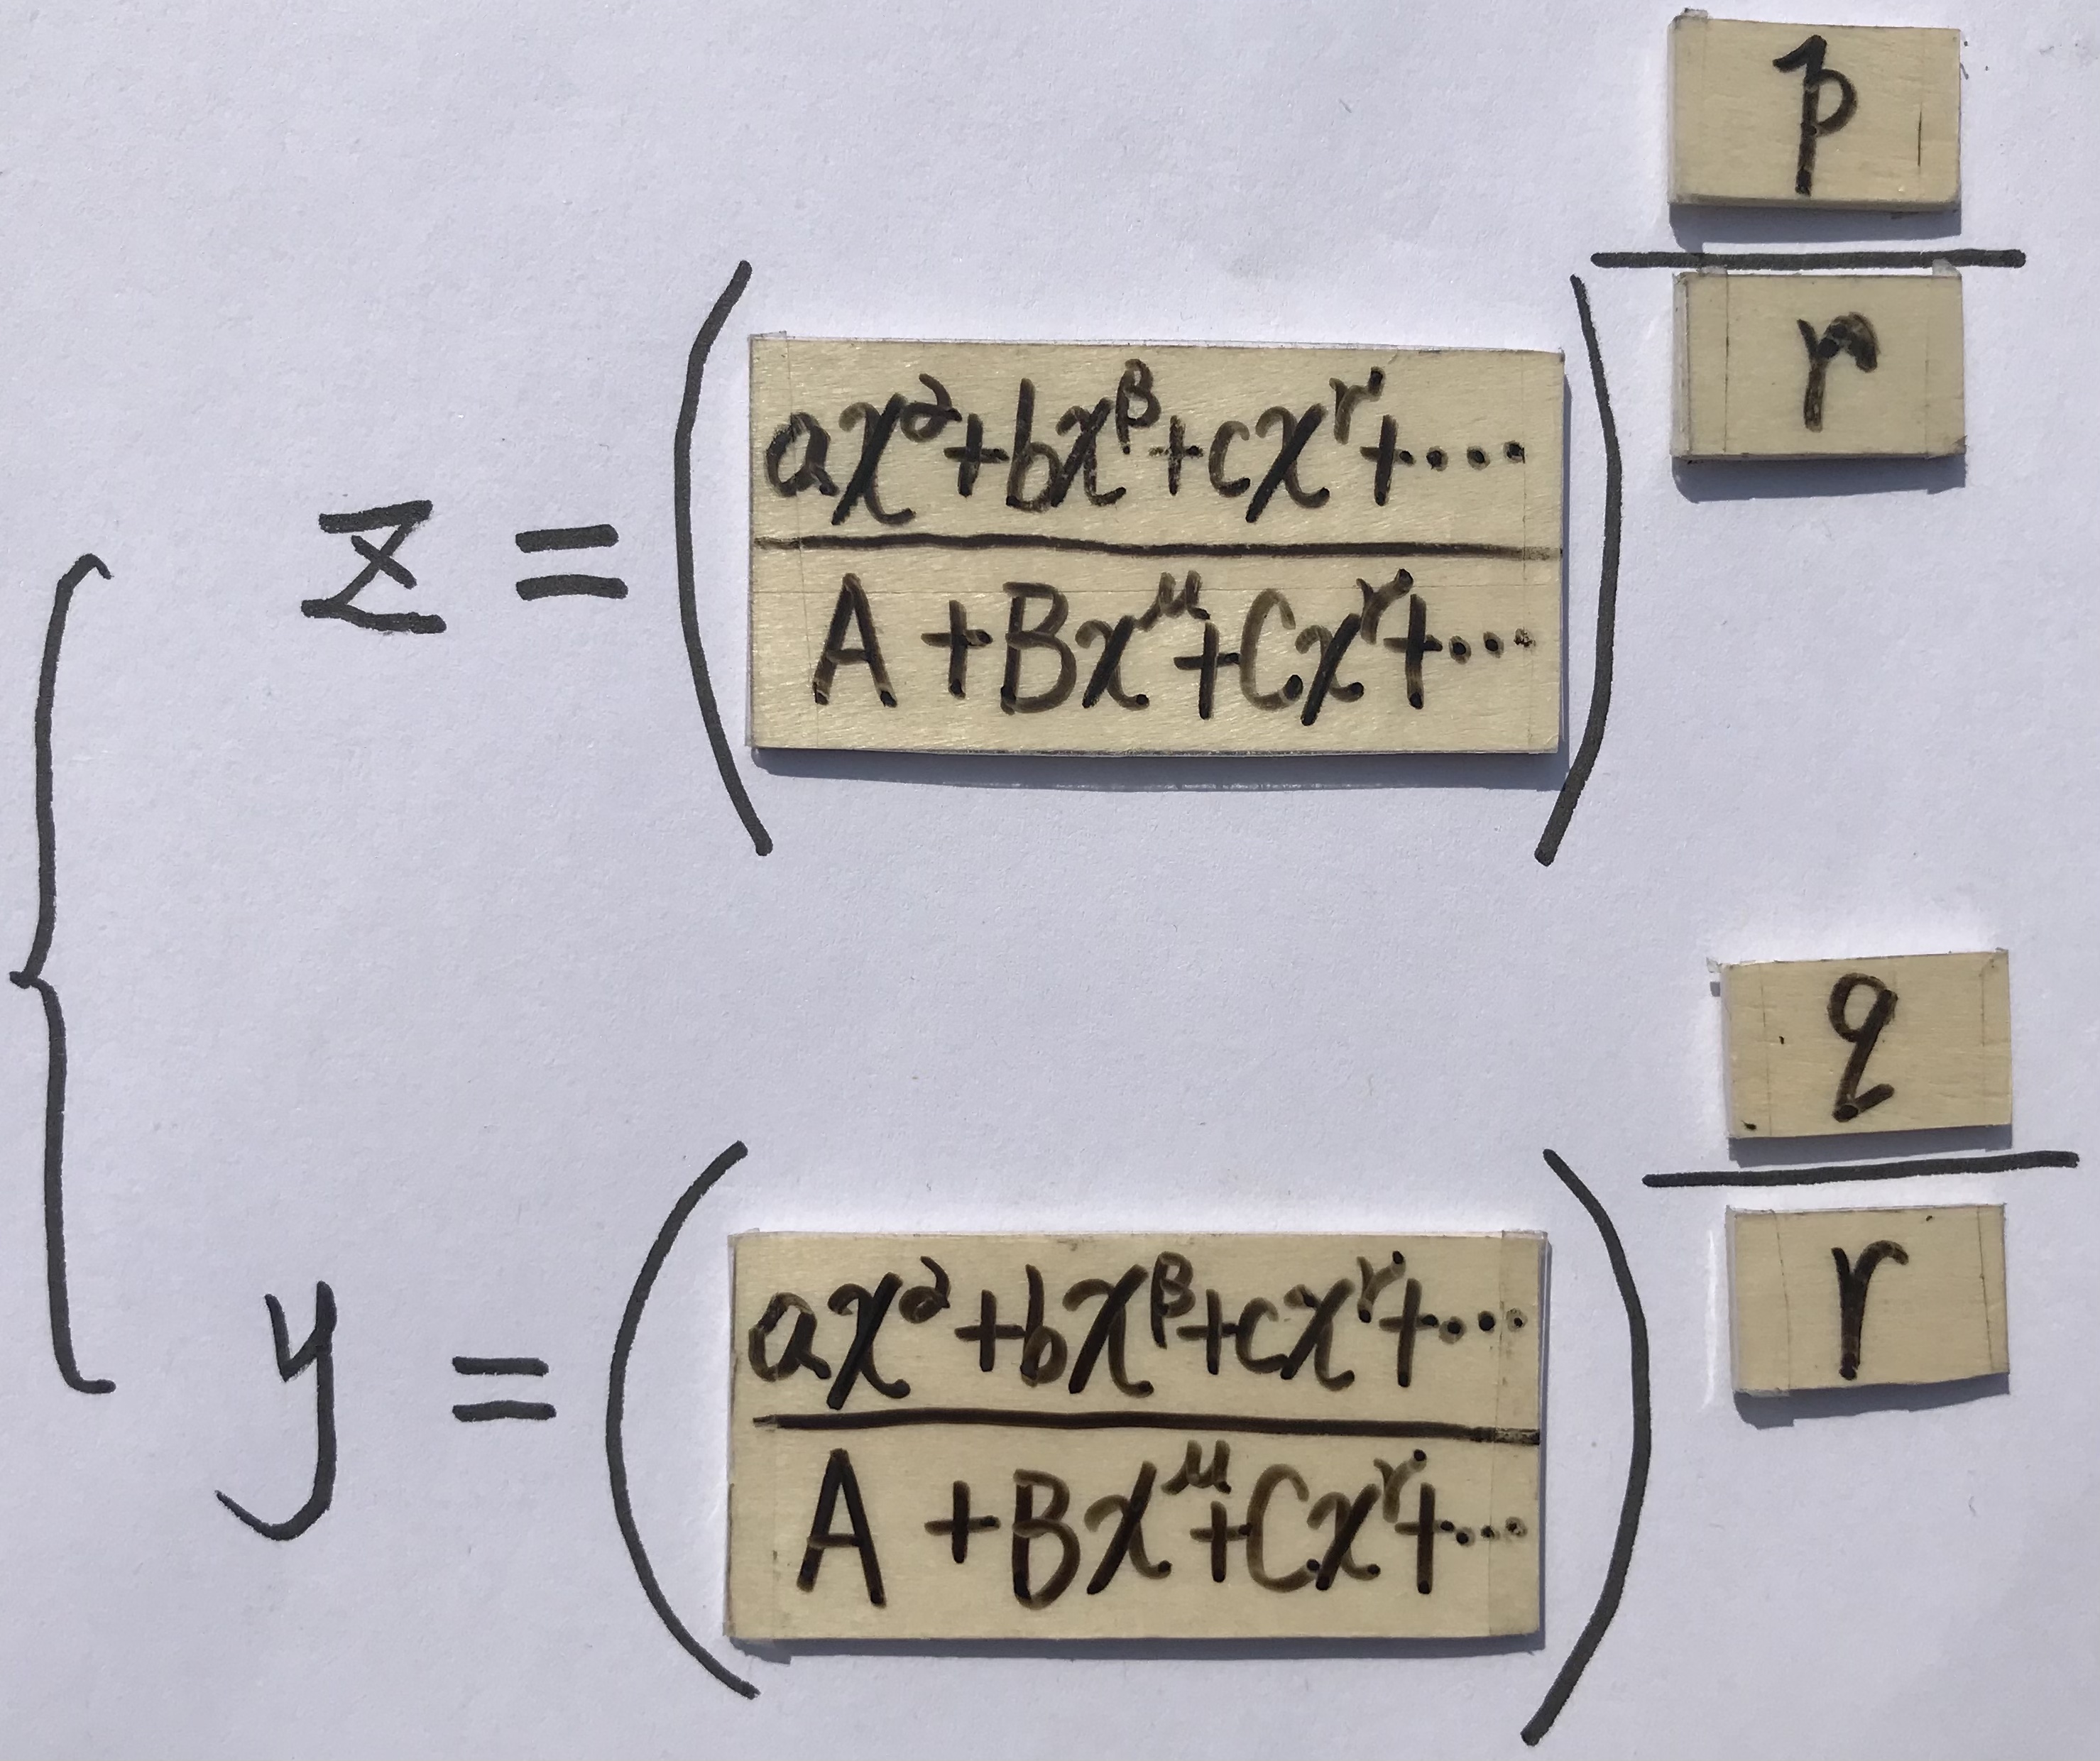 z = ( (ax^α + bx^β + cx^γ + ····) / (A + Bx^μ + Cx^γ + ···) )^(p/r)
y = ( (ax^α + bx^β + cx^γ + ···) / (A + Bx^μ + Cx^γ + ···) )^(q/r)